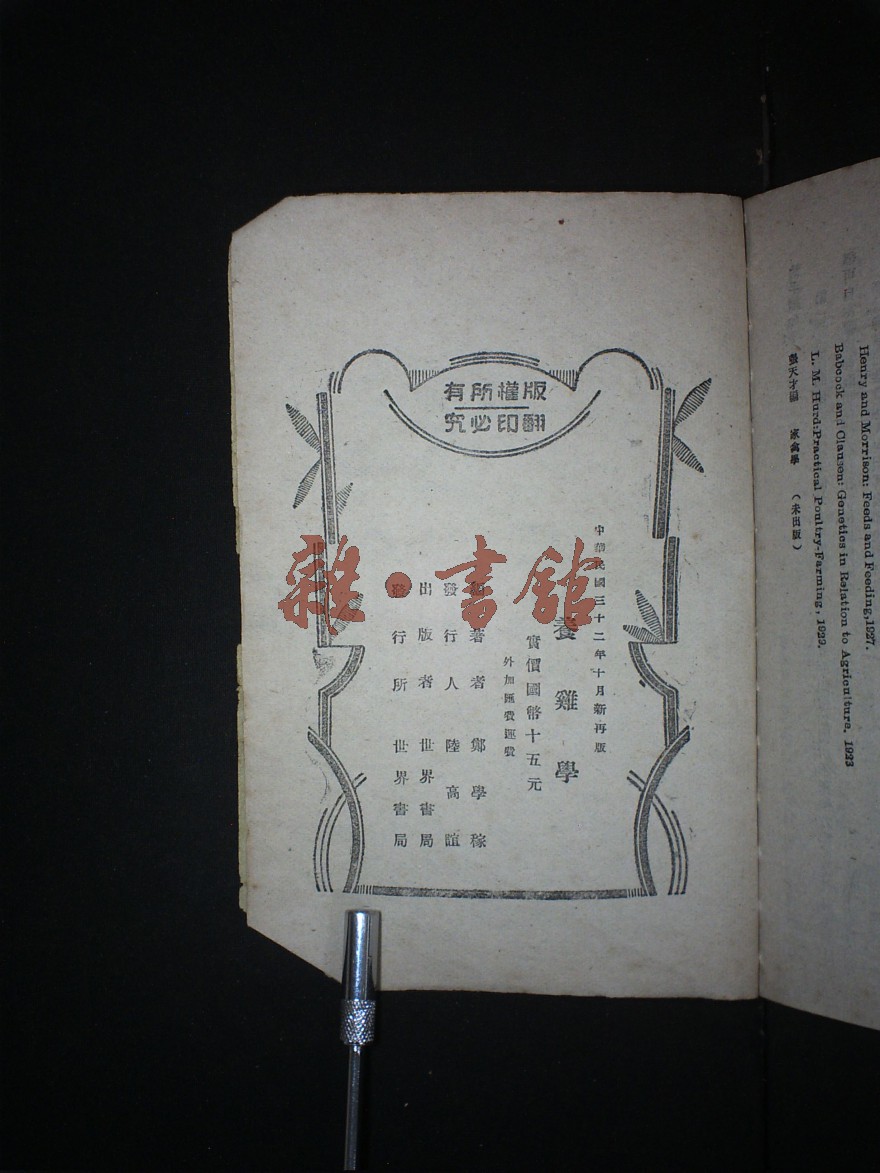 版權所有
翻印必究
中華民國三十二年十月新再版
養雞學
實價國幣十五元
外加匯費運費
編著者 鄭學稼
發行人 陸高誼
出版者 世界書局
發行所 世界書局
雜·書館
Henry and Morrison: Feeds and Feeding, 1927.
Babcock and Clausen: Genetics in Relation to Agriculture, 1923
L. M. Hurd: Practical Poultry-Farming, 1929.
家禽學 (未出版)